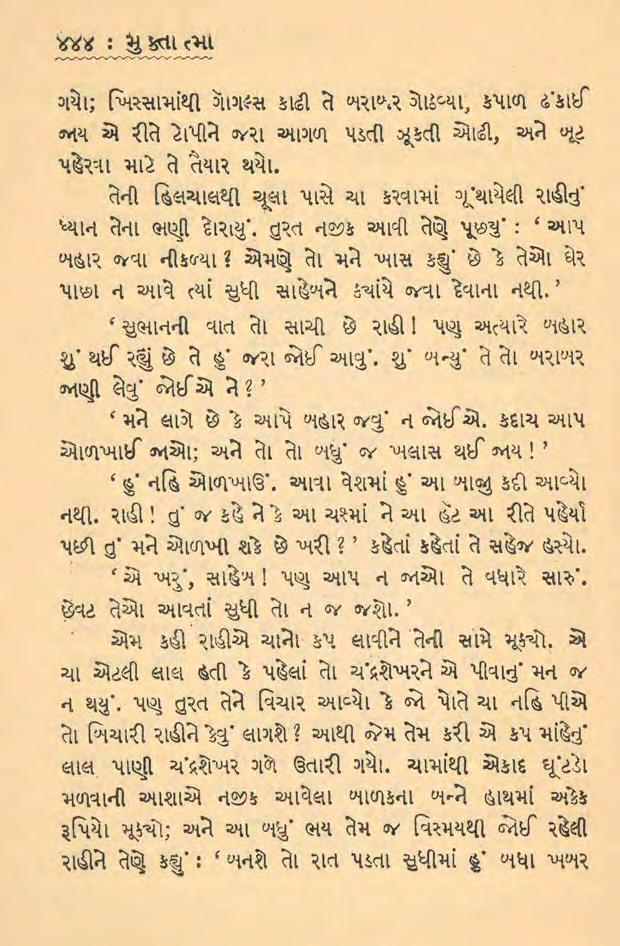 ૪૪૪ : મુક્તાત્મા
ગયો; ખિસ્સામાંથી ગૉગલ્સ કાઢી તે બરાબર ગોઠવ્યા, કપાળ ઢંકાઈ
જાય એ રીતે ટોપીને જરા આગળ પડતી ઝૂકતી ઓઢી, અને બૂટ
પહેરવા માટે તે તૈયાર થયો.
તેની હિલચાલથી ચૂલા પાસે ચા કરવામાં ગૂંથાયેલી રાહીનું
ધ્યાન તેના ભણી દોરાયું. તુરત નજીક આવી તેણે પૂછ્યું : ‘ આપ
બહાર જવા નીકળ્યા ? એમણે તો મને ખાસ કહ્યું છે કે તેઓ ઘેર
પાછા ન આવે ત્યાં સુધી સાહેબને ક્યાંયે જવા દેવાના નથી. ’
‘ સુભાનની વાત તો સાચી છે રાહી ! પણ અત્યારે બહાર
શું થઈ રહ્યું છે તે હું જરા જોઈ આવું. શું બન્યું તે તો બરાબર
જાણી લેવું જોઈએ ને ? ’
‘ મને લાગે છે કે આપે બહાર જવું ન જોઈએ. કદાચ આપ
ઓળખાઈ જાઓ; અને તો તો બધું જ ખલાસ થઈ જાય ! ’
‘ હું નહિ ઓળખાઉં. આવા વેશમાં હું આ બાજુ કદી આવ્યો
નથી. રાહી ! તું જ કહે ને કે આ ચશ્માં ને આ હૅટ આ રીતે પહેર્યા
પછી તું મને ઓળખી શકે છે ખરી ? ’ કહેતાં કહેતાં તે સહેજ હસ્યો.
‘ એ ખરું, સાહેબ ! પણ આપ ન જાઓ તે વધારે સારું.
છેવટ તેઓ આવતાં સુધી તો ન જ જશો. ’
એમ કહી રાહીએ ચાનો કપ લાવીને તેની સામે મૂક્યો. એ
ચા એટલી લાલ હતી કે પહેલાં તો ચંદ્રશેખરને એ પીવાનું મન જ
ન થયું. પણ તુરત તેને વિચાર આવ્યો કે જો પોતે ચા નહિ પીએ
તો બિચારી રાહીને કેવું લાગશે ? આથી જેમ તેમ કરી એ કપ માંહેનું
લાલ પાણી ચંદ્રશેખર ગળે ઉતારી ગયો. ચામાંથી એકાદ ઘૂંટડો
મળવાની આશાએ નજીક આવેલા બાળકના બન્ને હાથમાં અકેક
રૂપિયો મૂક્યો; અને આ બધું ભય તેમ જ વિસ્મયથી જોઈ રહેલી
રાહીને તેણે કહ્યું : ‘ બનશે તો રાત પડતા સુધીમાં હું બધા ખબર